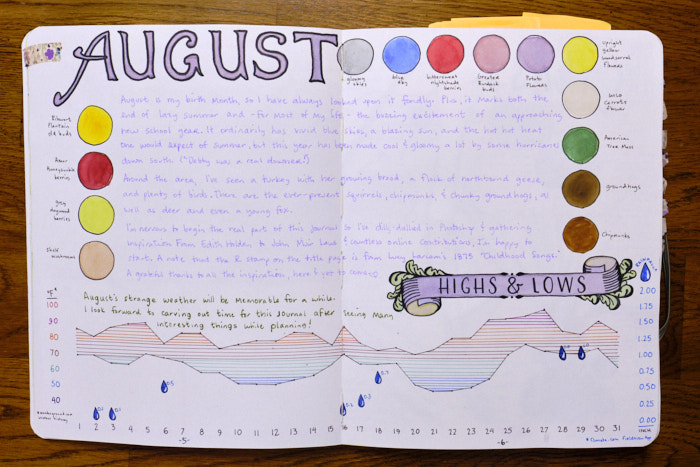 AUGUST
gloomy skies
blue sky
bittersweet nightshade berries
Greater Burdock buds
Potato Flowers
upright yellow woodsorrel flowers
Dwarf Plantain old buds
Amur Honeysuckle berries
gray dogwood berries
Shelf mushrooms
wild carrots flower
American Tree Moss
groundhogs
Chipmunks
August is my birth month, so I have always looked upon it fondly. Plus, it marks both the
end of lazy summer and - for most of my life - the buzzing excitement of an approaching
new school year. It ordinarily has vivid blue skies, a blazing sun, and the hot hot heat
the world aspect of summer, but this year has been made cool & gloomy a lot by some hurricanes
down south. (*Debby was a real downer!)
Around the area, I've seen a turkey with her growing brood, a flock of northbound geese,
and plenty of birds. There are the ever-present squirrels, chipmunks, & chunky groundhogs, as
well as deer and even a young fox.
I'm nervous to begin the real part of this journal so I'll dally in Photoshop & gathering
inspiration. From Edith Holden to John Muir Laws & countless online contributions, I'm happy to
start. A note that the R stamp on the title page is from Lucy Larcom's 1875 "Childhood Songs."
A grateful thanks to all the inspiration, here & yet to come.
August's strange weather will be memorable for a while.
I look forward to carving out time for this journal after seeing many
interesting things while planning!
HIGHS & LOWS
°F
100
90
80
70
60
50
40
Rainfall
2.00
1.75
1.50
1.25
1.00
0.75
0.50
0.25
0.00
inches
0.5
0.7
0.3
1 2 3 4 5 6 7 8 9 10 11 12 13 14 15 16 17 18 19 20 21 22 23 24 25 26 27 28 29 30 31
-5-
-6-